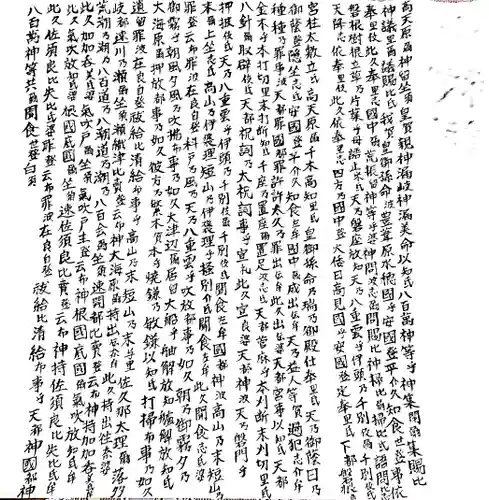 高天原爾神留坐皇賀親神漏岐神漏美命以知氐八百萬神等乎神集閇爾集賜比
神議里爾議賜比氐我賀皇御孫命波豊葦原水穗國乎安國登平介久知食世登事
奉里伎此久奉里志國中爾荒振留神等乎婆神問波志爾問賜比神掃比爾掃比氐語問比志
磐根樹根立草乃片葉乎母語止米氐天乃磐座放知天乃八重雲乎伊頭乃千別伎爾千別伎氐
天降志依奉里伎此久依奉里志四方乃國中登大倭日高見國乎安國登定奉里氐下都磐根爾
宮柱太敷立氐高天原爾千木高知里氐皇御孫命乃瑞乃御殿仕奉里氐天乃御蔭日乃
御蔭登隱坐志氐安國登平介久知食左牟國中爾成出傳牟天乃益人等賀過犯志介牟
種種乃罪事波天都罪國都罪許許太久乃罪出傳牟此久出傳婆天都宮事以知氐天都
金木乎本打切里末打斷知氐千座乃置座爾置足波志氐天都菅麻乎本刈斷末刈切里氐
八針爾取辟伎氐天都祝詞乃太祝詞事乎宣礼此久宣良婆天都神波天乃磐門乎
押披伎氐天乃八重雲乎伊頭乃千別伎爾千別伎氐聞食左牟國都神波高山乃末短山乃
末爾上坐志氐高山乃伊褒理短山乃伊褒理乎掻別介氐聞食左牟此久聞食志氐婆
罪登云布罪波在良自登科戸乃風乃天乃八重雲乎吹放都事乃如久朝乃御霧夕乃
御霧乎朝風夕風乃吹拂布事乃如久大津辺爾居留大船乎舳解放知艫解放知氐
大海原爾押放都事乃如久彼方乃繁木賀本乎燒鎌乃敏鎌以知氐打掃布事乃如久
遺留罪波在良自登祓給比清給布事乎高山乃末短山乃末与里佐久那太理爾落多
岐都速川乃瀬爾坐須瀬織津比賣登云布神大海原爾持出伝奈牟此久持出往奈婆
荒潮乃潮乃八百道乃八潮道乃潮乃八百會爾坐須速開都比賣登云布神持加加呑美氐牟
此久加加呑美氐婆氣吹戸爾坐須氣吹戸主登云布神根國底國爾氣吹放知氐牟
此久氣吹放知氐婆根國底國爾坐須速佐須良比賣登云布神持佐須良比失比氐牟
此久佐須良比失比氐婆罪登云布罪波在良自登祓給比清給布事乎天都神國都神
八百萬神等共爾聞食世登白須